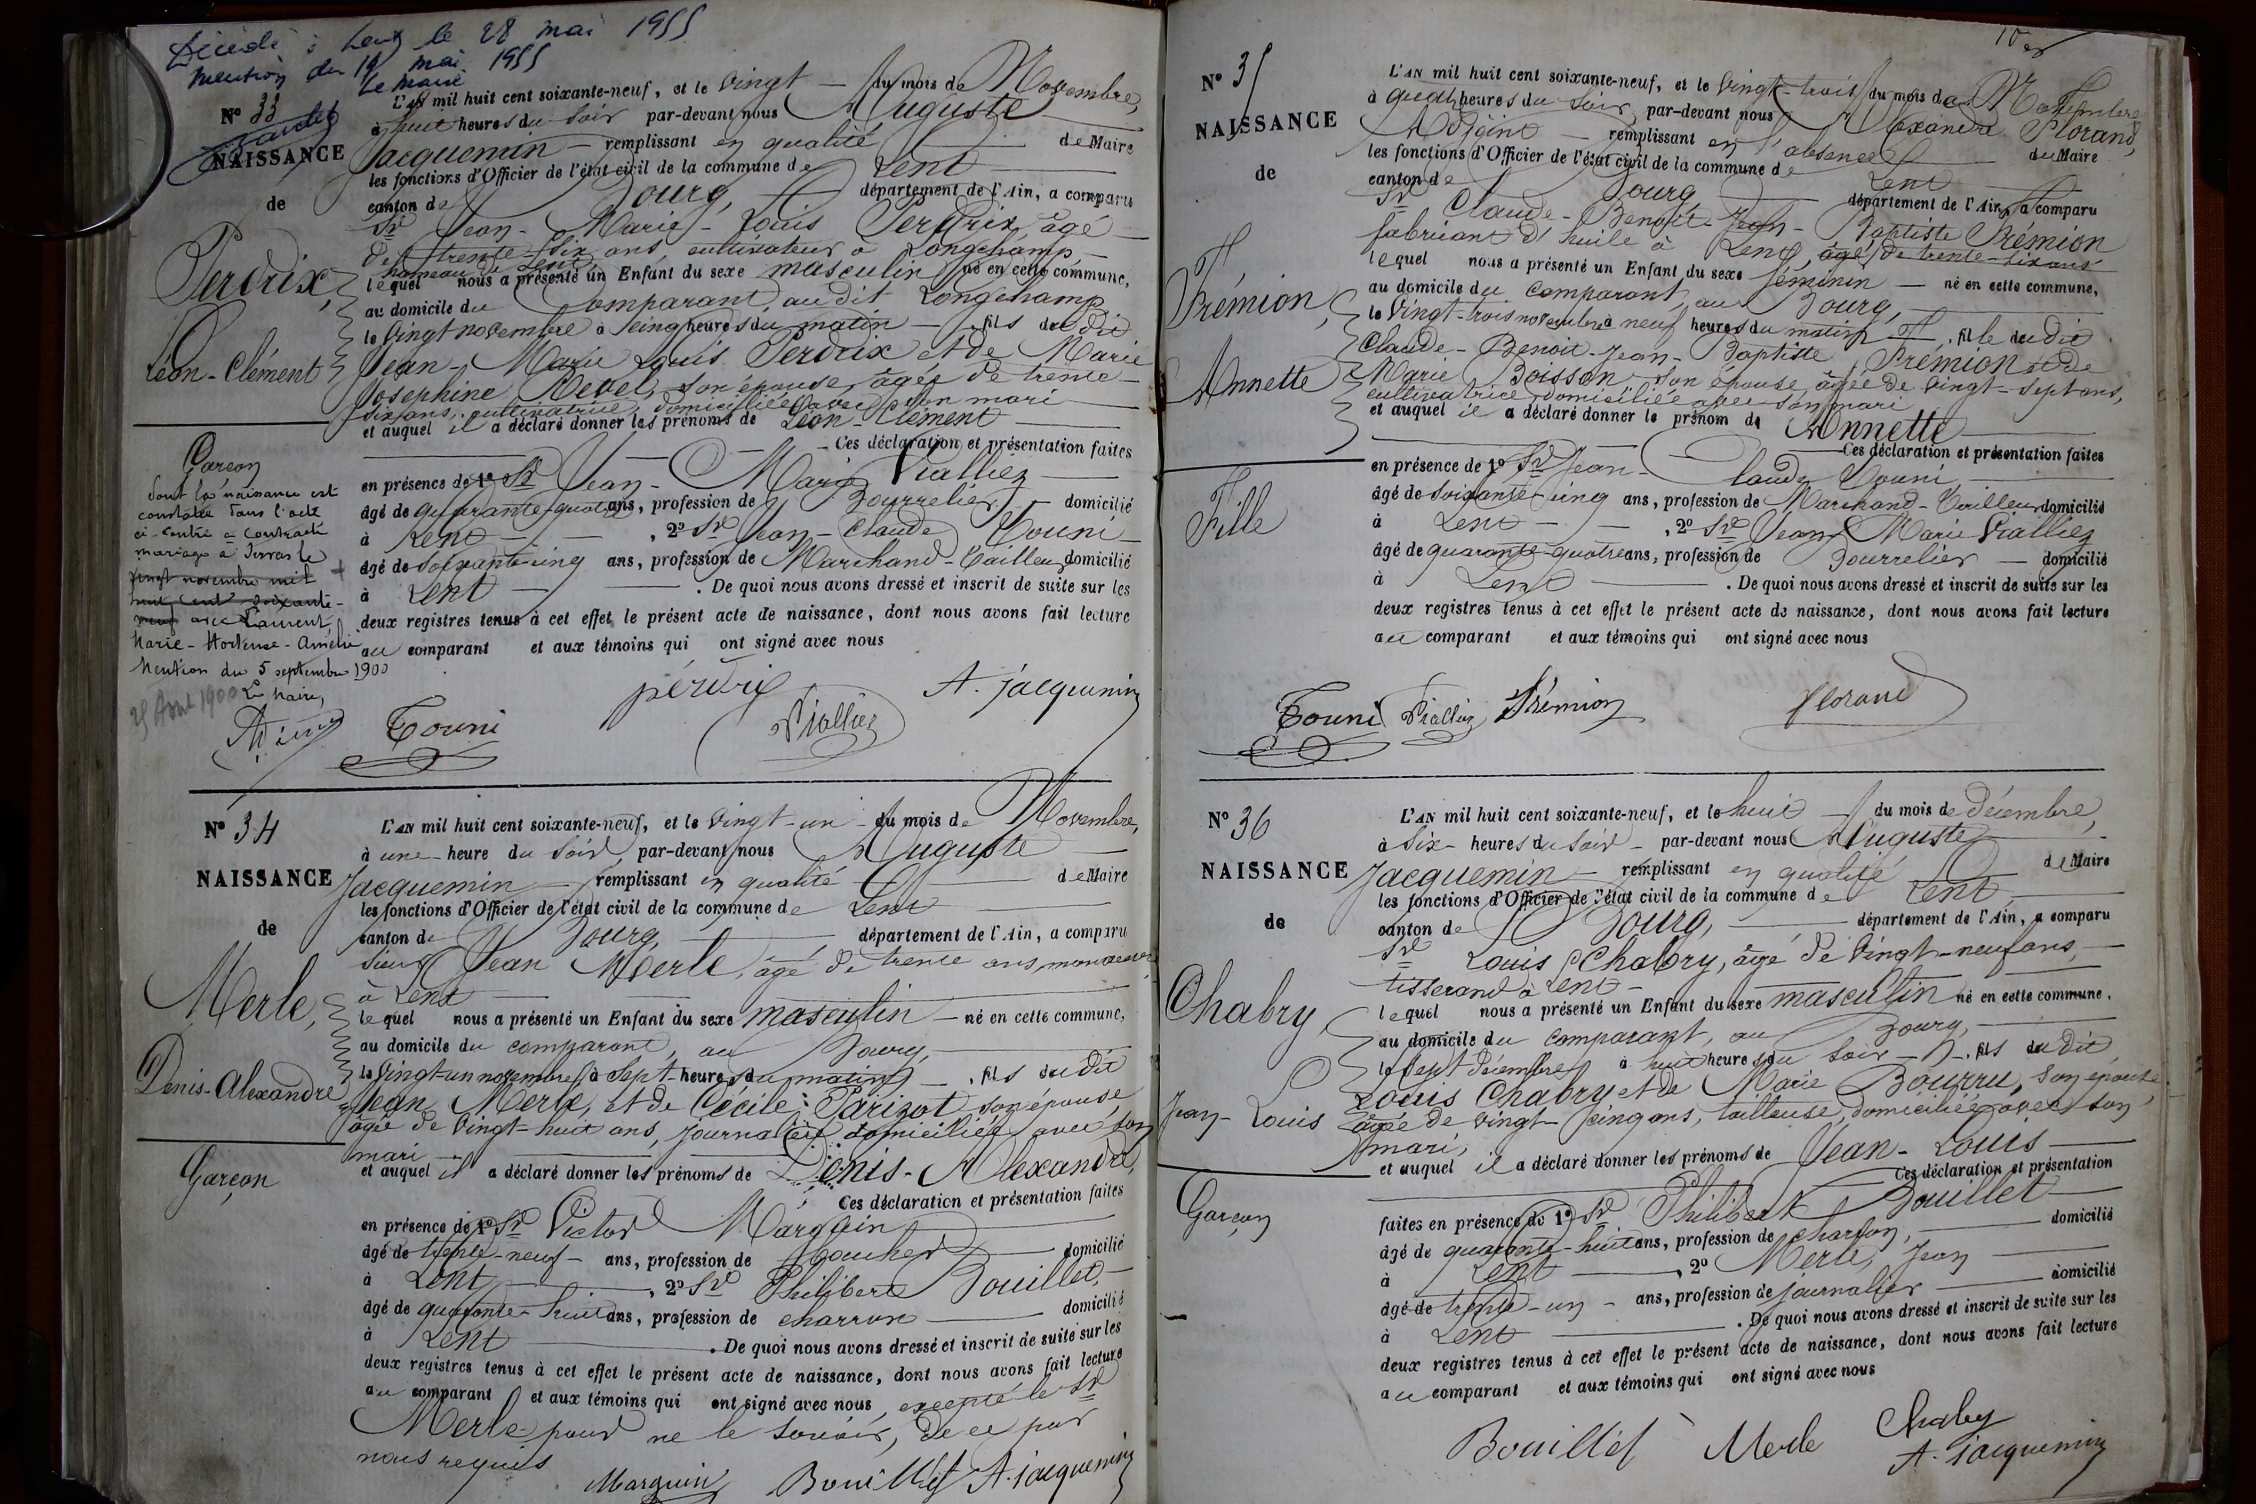 Décédé à Lent le 28 mai 1955
mention du 19 mai 1955
Le maire
N° 33
NAISSANCE
de
Perdrix,
Léon-Clément
Garçon
dont la naissance est
constatée dans l'acte
ci-contre a contracté
mariage à Servas le
vingt novembre mil
huit cent soixante-
neuf avec Laurent,
Marie-Hortense-Amélie
Mention du 5 septembre 1900
Le Maire,
25 Aout 1900
L'AN mil huit cent soixante-neuf, et le vingt du mois de Novembre,
à huit heures du soir par-devant nous Auguste
Jacquemin remplissant en qualité de Maire
les fonctions d'Officier de l'état civil de la commune de Lent
canton de Bourg, département de l'Ain, a comparu
Sr Jean-Marie-Louis Perdrix, âgé
de trente-six ans, cultivateur à Longchamp
hameau de Lent,
lequel nous a présenté un Enfant du sexe masculin né en cette commune,
au domicile du comparant, audit Longchamp
le vingt novembre à cinq heures du matin, fils dudit
Jean-Marie Louis Perdrix et de Marie
Josephine Revel, son épouse, âgée de trente-
six ans, cultivatrice, domiciliée avec son mari
et auquel il a déclaré donner les prénoms de Léon-Clément
Ces déclaration et présentation faites
en présence de 1° Sr Jean-Marie Vialliez
âgé de quarante-quatre ans, profession de Bourrelier domicilié
à Lent, 2° Sr Jean-Claude Touni
âgé de soixante-cinq ans, profession de Marchand-Tailleur domicilié
à Lent. De quoi nous avons dressé et inscrit de suite sur les
deux registres tenus à cet effet le présent acte de naissance, dont nous avons fait lecture
au comparant et aux témoins qui ont signé avec nous
perdrix A. jacquemin
Touni Vialliez
N° 34
NAISSANCE
de
Merle,
Denis-Alexandre
Garçon
L'AN mil huit cent soixante-neuf, et le vingt-un du mois de Novembre,
à une heure du soir, par-devant nous Auguste
Jacquemin remplissant en qualité de Maire
les fonctions d'Officier de l'état civil de la commune de Lent
canton de Bourg, département de l'Ain, a comparu
sieur Jean Merle, âgé de trente ans, manoeuvre
à Lent
lequel nous a présenté un Enfant du sexe masculin né en cette commune,
au domicile du comparant, au Bourg,
le vingt-un novembre à sept heures du matin, fils dudit
Jean Merle, et de Cécile Parizot, son épouse
âgée de vingt-huit ans, journalière domiciliée avec son
mari
et auquel il a déclaré donner les prénoms de Denis-Alexandre,
Ces déclaration et présentation faites
en présence de 1° Sr Victor Marguin
âgé de trente-neuf ans, profession de boucher domicilié
à Lent, 2° Sr Philibert Bouillet,
âgé de quarante-huit ans, profession de charron domicilié
à Lent. De quoi nous avons dressé et inscrit de suite sur les
deux registres tenus à cet effet le présent acte de naissance, dont nous avons fait lecture
au comparant et aux témoins qui ont signé avec nous, excepté le Sr
Merle pour ne le savoir, de ce par
nous requis
Marguin Bouillet A. jacquemin
N° 35
NAISSANCE
de
Frémion,
Annette
Fille
L'AN mil huit cent soixante-neuf, et le vingt-trois du mois de Novembre
à quatre heures du soir, par-devant nous Alexandre Florand,
Adjoint remplissant en l'absence du Maire
les fonctions d'Officier de l'état civil de la commune de Lent
canton de Bourg département de l'Ain, a comparu
Sr Claude-Benoit-Jean-Baptiste Frémion
fabricant d'huile à Lent, âgé de trente-six ans
lequel nous a présenté un Enfant du sexe féminin né en cette commune,
au domicile du comparant, au Bourg,
le vingt-trois novembre à neuf heures du matin, fille dudit
Claude-Benoit-Jean-Baptiste Frémion et de
Marie Boisson son épouse, âgée de vingt-sept ans,
cultivatrice, domiciliée avec son mari
et auquel il a déclaré donner le prénom de Annette
Ces déclaration et présentation faites
en présence de 1° Sr Jean-Claude Touni,
âgé de soixante-cinq ans, profession de Marchand-Tailleur domicilié
à Lent, 2° Sr Jean Marie Vialliez
âgé de quarante-quatre ans, profession de Bourrelier domicilié
à Lent. De quoi nous avons dressé et inscrit de suite sur les
deux registres tenus à cet effet le présent acte de naissance, dont nous avons fait lecture
au comparant et aux témoins qui ont signé avec nous
Touni Vialliez Frémion Florand
N° 36
NAISSANCE
de
Chabry
Jean-Louis
Garçon
L'AN mil huit cent soixante-neuf, et le huit du mois de décembre,
à six heures du soir par-devant nous Auguste
Jacquemin remplissant en qualité de Maire
les fonctions d'Officier de l'état civil de la commune de Lent
canton de Bourg, département de l'Ain, a comparu
Sr Louis Chabry, âgé de vingt-neuf ans,
tisserand à Lent
lequel nous a présenté un Enfant du sexe masculin né en cette commune,
au domicile du comparant, au Bourg,
le sept décembre à huit heures du soir, fils dudit
Louis Chabry et de Marie Bourru, son épouse
âgée de vingt-cinq ans, tailleuse, domiciliée avec son
mari,
et auquel il a déclaré donner les prénoms de Jean-Louis
Ces déclaration et présentation
faites en présence de 1° Sr Philibert Bouillet
âgé de quarante-huit ans, profession de charron, domicilié
à Lent, 2° Merle, Jean
âgé de trente-un ans, profession de journalier domicilié
à Lent. De quoi nous avons dressé et inscrit de suite sur les
deux registres tenus à cet effet le présent acte de naissance, dont nous avons fait lecture
au comparant et aux témoins qui ont signé avec nous
Bouillet Merle Chabry
A. jacquemin